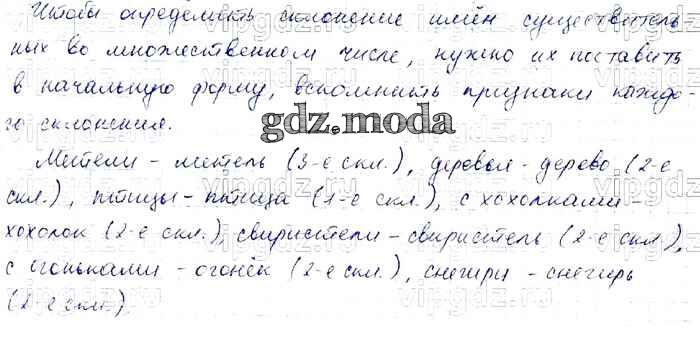 Чтобы определить склонение имён существитель
ных во множественном числе, нужно их поставить
в начальную форму, вспомнить признаки каждо-
го склонения.
gdz.moda
Метели - метель (3-е скл.), деревья - дерево (2-е
скл.), птицы - птица (1-е скл.), с хохолками -
хохолок (2-е скл.), свиристели - свиристель (2-е скл.),
с огоньками - огонёк (2-е скл.), снегири - снегирь
(2-е скл.)